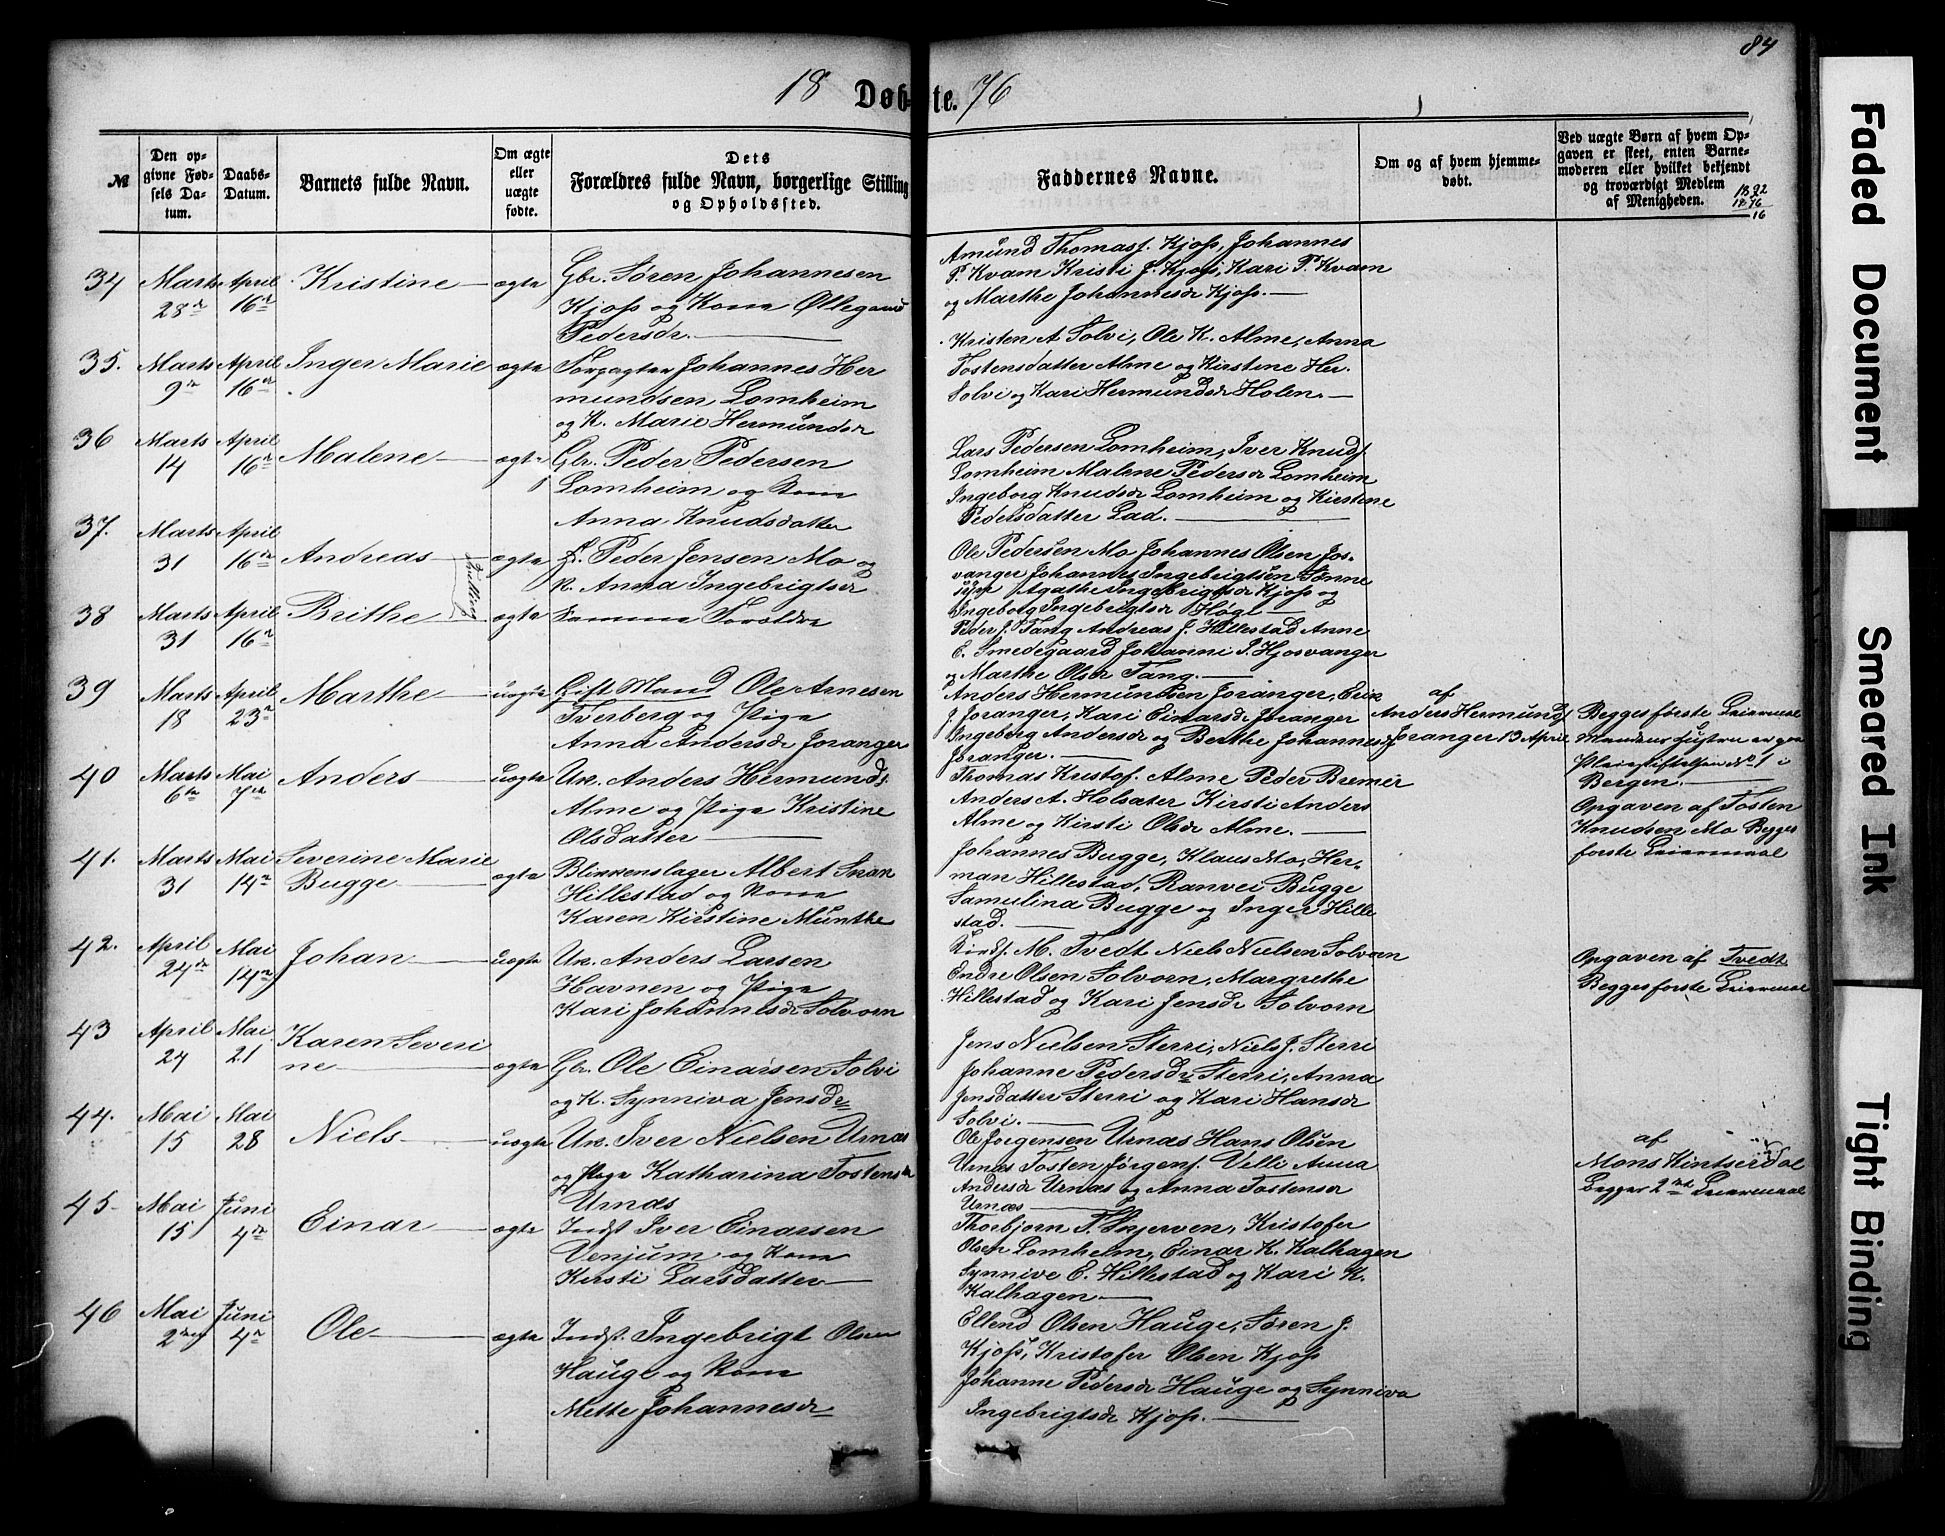 84
18 Døbte. 76
№
Den opgivne Fødsels Datum.
Daabs-Datum.
Barnets fulde Navn.
Om ægte eller uægte fødte.
Dets Forældres fulde Navn, borgerlige Stilling og Opholdssted.
Faddernes Navne.
Om og af hvem hjemmedøbt.
Ved uægte Børn af hvem Opgaven er skeet, enten Barnemoderen eller hvilket bekjendt og troværdigt Medlem af Menigheden.
1892
1876
16
34 Marts 28de April 16de Kristine ægte
Gbr. Søren Johannesen
Kjoss og Kone Ollegaard
Pedersdr.
Amund Thomasf. Kjoss, Johannes
P. Kvam Kristi J. Kjoss, Kari P. Kvam
og Marthe Johannesdr Kjoss.
35. Marts 9de April 16de Inger Marie ægte
Forpagter Johannes Her
mundsen Lomheim
og K. Marie Hermundsdr
Kristen A Solvi, Ole K. Alme, Anna
Tostensdatter Alme og Kirstine Her.
Solvi og Kari Hermundsdr Holen.
36 Marts 14 April 16de Malene ægte
Gbr. Peder Pedersen
Lomheim og Kone
Anna Knudsdatter
Lars Pedersen Lomheim, Iver Knudf
Lomheim Malene Pedersdr Lomheim
Ingeborg Knudsdr Lomheim og Kirstene
Pedersdatter Lad.
37. Marts 31 April 16de Andreas Tvilling ægte
F. Peder Jensen Mo og
K. Anna Ingebrigtsdr
Ole Pedersen Mo Johannes Olsen Jos-
vanger Johannes Ingebrigtsen Sønne
Agathe Ingebrigtsdr Kjoss og
Ingeborg Ingebrigtsdr Høgi
38 Marts 31 April 16de Brithe ægte
Samme Forældre
Peder J. Tang Andreas J. Hillestad Anne
E. Smedegaard Johanne P. Hjosvanger
og Marthe Olsdr Tang.
39 Marts 18 April 23de Marthe uægte
Gift Mand Ole Arnesen
Tverberg og Pige
Anna Andersdr Joranger
Anders Hermundsen Joranger, Erik
J. Joranger, Kari Einarsdr Joranger
Ingeborg Andersdr og Berthe Johannesdr
Joranger.
af
Anders Hermundf
Joranger 13 April
Begges første Leiermaal
Mandens Hustru er paa
Pleiestiftelsen No 1 i
Bergen.
40 Marts 6te Mai 7de Anders uægte
Uk. Anders Hermunds
Alme og Pige Kristine
Olsdatter
Thomas Kristof. Alme Peder Bremer
Anders A. Holsæter Kirsti Anders
Alme og Kirsti Olsdr Alme.
Opgaven af Tosten
Knudsen Mo Begges
første Leiermaal
41. Marts 31 Mai 14de Severine Marie
Bugge ægte
Blikkenslager Albert
Hillestad og Kone
Karen Kirstine Munthe
Johannes Bugge, Klaus Mo, Her-
man Hillestad, Ranvei Bugge
Samulina Bugge og Inger Hille
stad.
42. April 24de Mai 14de Johan uægte
Uk. Anders Larsen
Havnen og Pige
Kari Johannesdr Solvorn
M. Tvedt Niels Nielsen Solvorn
Endre Olsen Solvorn, Margrethe
Hillestad og Kari Jensdr Solvorn
Opgaven af Tvedt
Begges første Leiermaal
43 April 24 Mai 21 Karen Severi
ne ægte
Gbr. Ole Einarsen Solvi
og K. Synniva Jensdr
Jens Nielsen Sterri, Niels J. Sterri
Johanne Pedersdr Sterri, Anna
Jensdatter Sterri og Kari Hansdr
Solvi.
44. Mai 15 Mai 28 Niels uægte
Uk. Iver Nielsen Urnæs
og Pige Katharina Tostensdr
Urnæs
Ole Jørgensen Urnæs Hans Olsen
Urnæs Tosten Jørgenf. Velli Anna
Andersdr Urnæs og Anna Tostensdr
Urnæs
af
Mons Kintserdal
Begges 2det Leiermaal
45. Mai 15 Juni 4de Einar ægte
Indst Iver Einarsen
Venjum og Kone
Kirsti Larsdatter
Thorbjørn T. Skjerven, Kristofer
Olsen Lomheim, Einar K. Kalhagen
Synnive E. Hillestad og Kari K.
Kalhagen
46 Mai Juni 4de Ole ægte
Indst. Ingebrigt Olsen
Hauge og Kone
Mette Johannesdr
Ellend Olsen Hauge, Søren J.
Kjoss, Kristofer Olsen Kjoss
Johanne Pedersdr Hauge og Synniva
Ingebrigtsdr Kjoss.
Faded Document
Smeared Ink
Tight Binding